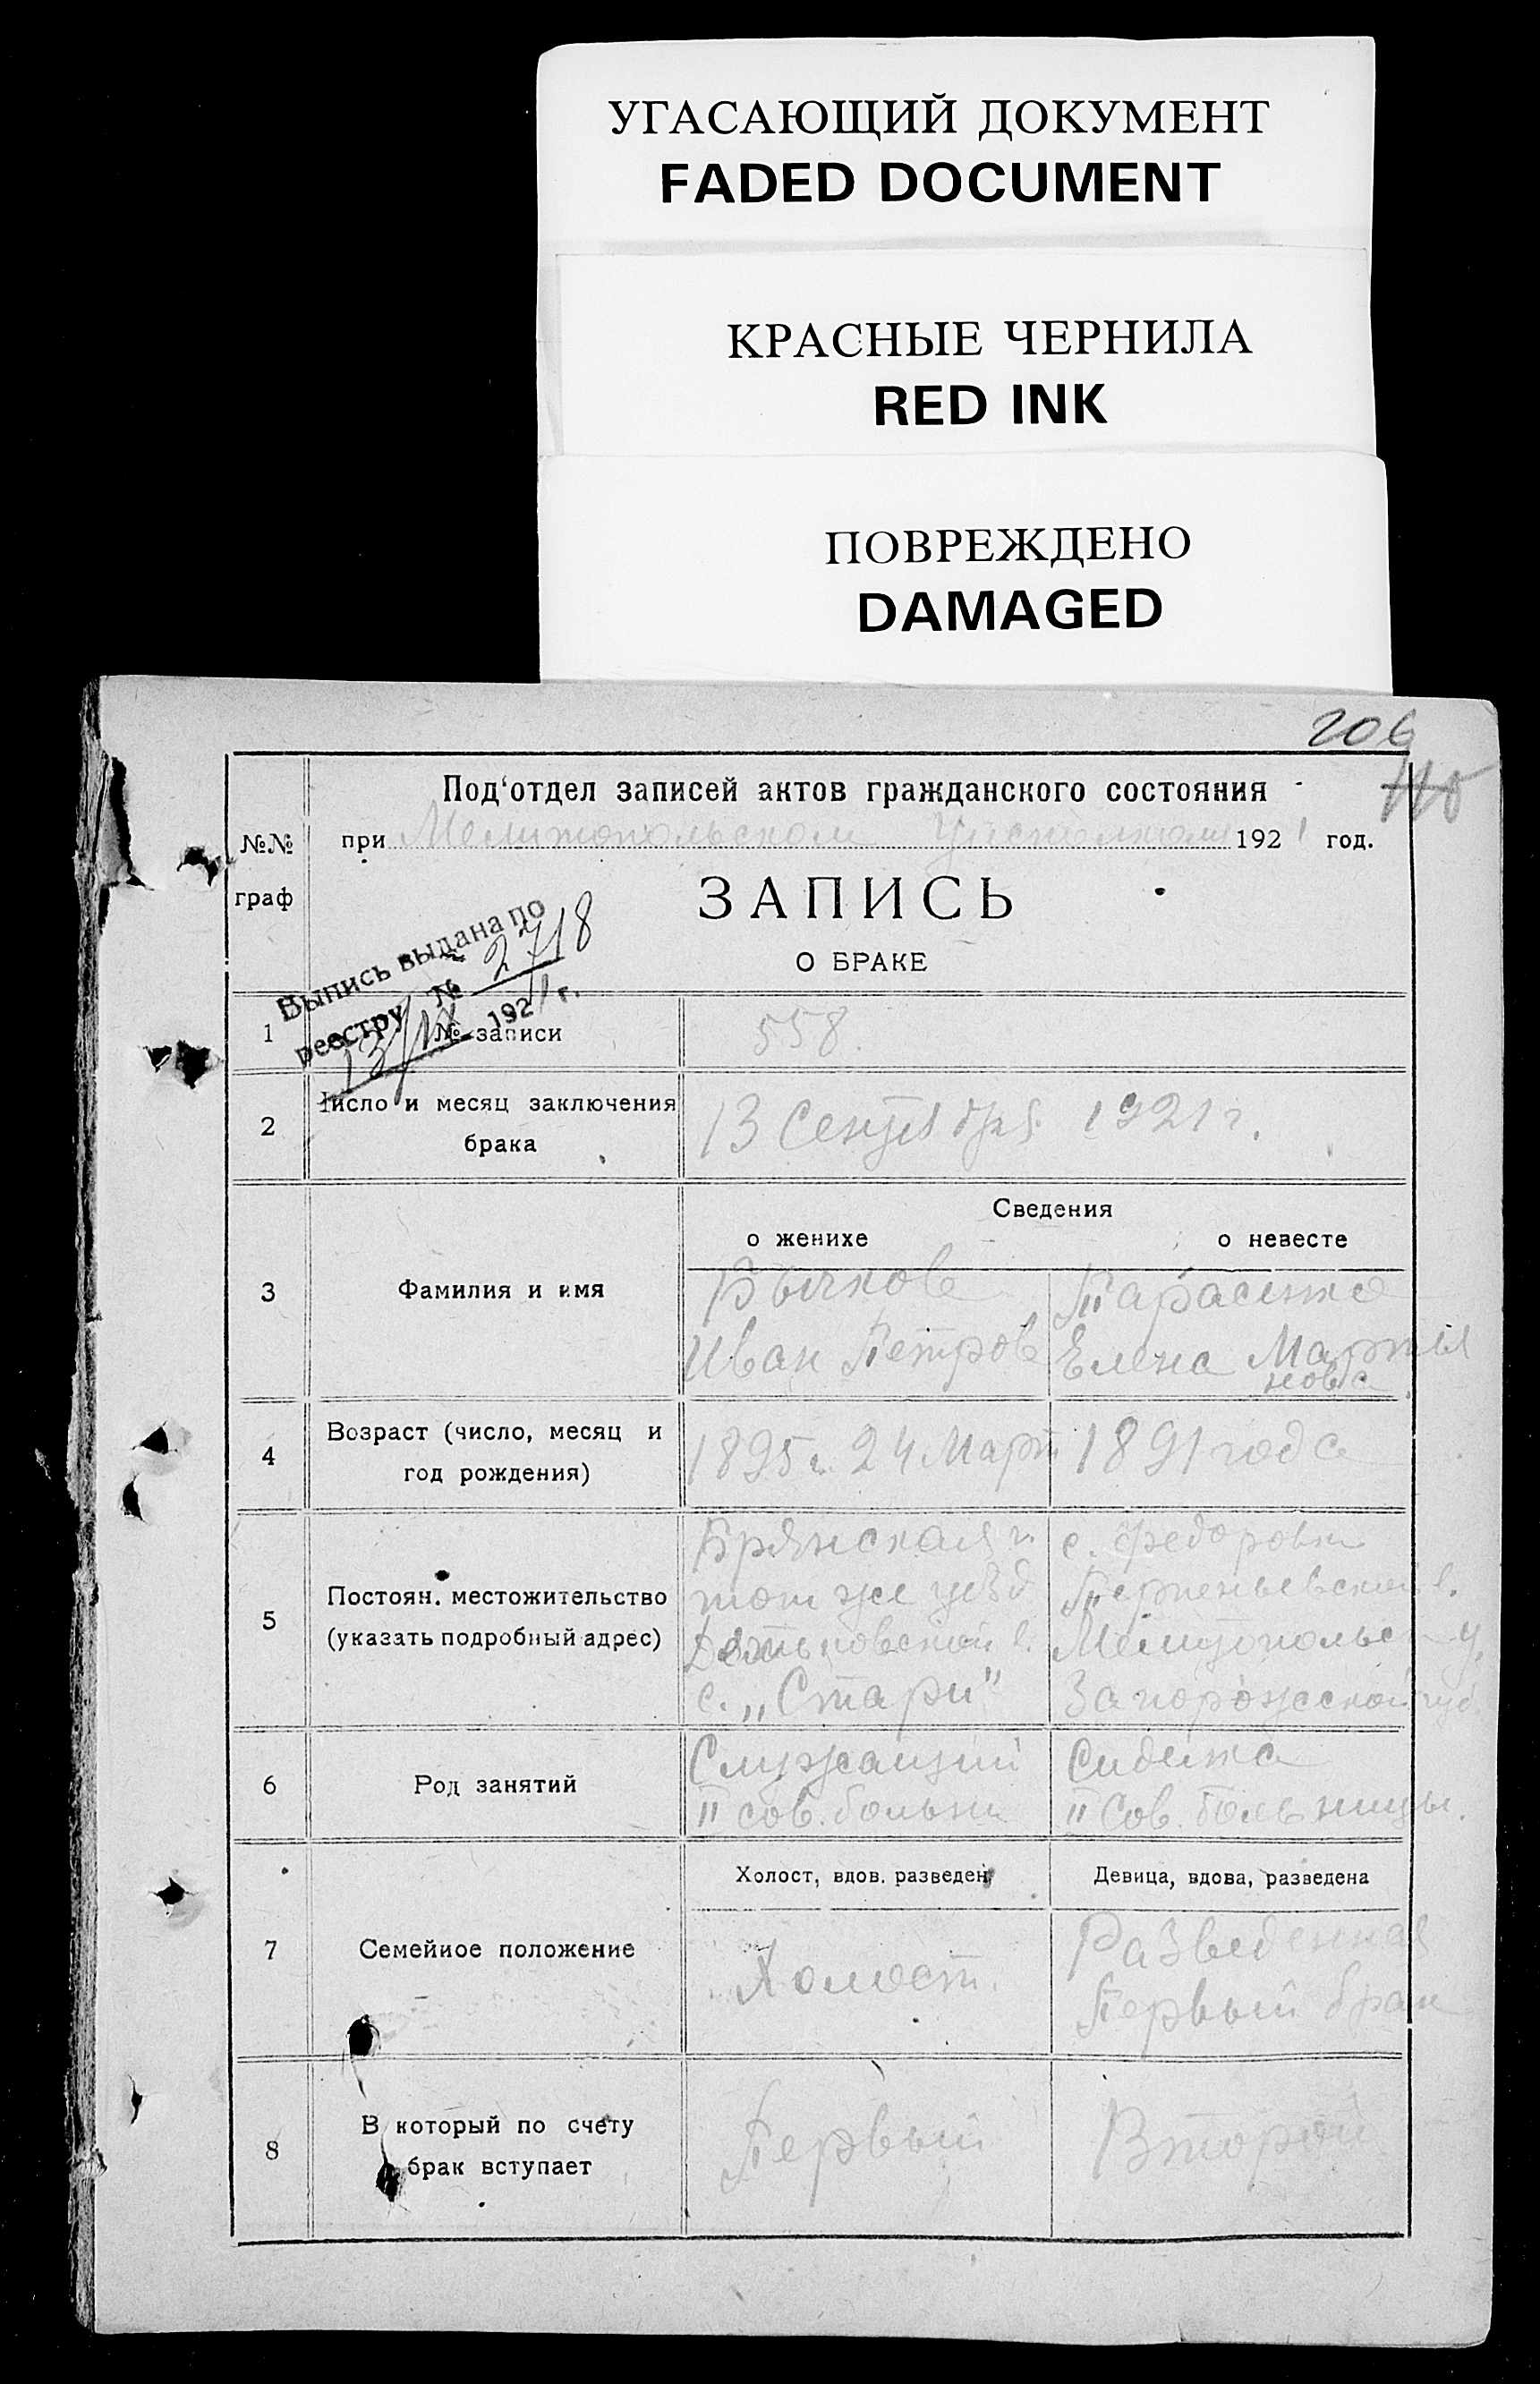 УГАСАЮЩИЙ ДОКУМЕНТ
FADED DOCUMENT
КРАСНЫЕ ЧЕРНИЛА
RED INK
ПОВРЕЖДЕНО
DAMAGED
206
110
Под'отдел записей актов гражданского состояния
№№ граф
при Мелитопольском 1921 год.
ЗАПИСЬ
О БРАКЕ
Выпись выдана по
реестру № 2718
13/IX 1921 г.
1 № записи 558.
2 Число и месяц заключения брака 13 Сентября 1921 г.
Сведения
о женихе о невесте
3 Фамилия и имя
Бычков Тарасенко
Иван Петров Елена Марты
нова
4 Возраст (число, месяц и год рождения)
1895 г. 24 Март 1891 года
5 Постоян. местожительство (указать подробный адрес)
Брянская г. с. Федоровки
той же уезд Терпеньевской в.
Дятьковской в. Мелитопольс у.
с. „Стари" Запорожской губ.
6 Род занятий
Служащий Сиделка
II сов. больни II Сов. больницы.
7 Семейное положение
Холост, вдов. разведен Девица, вдова, разведена
Холост. Разведенная
Первый брак
8 В который по счету брак вступает
Первый Второй